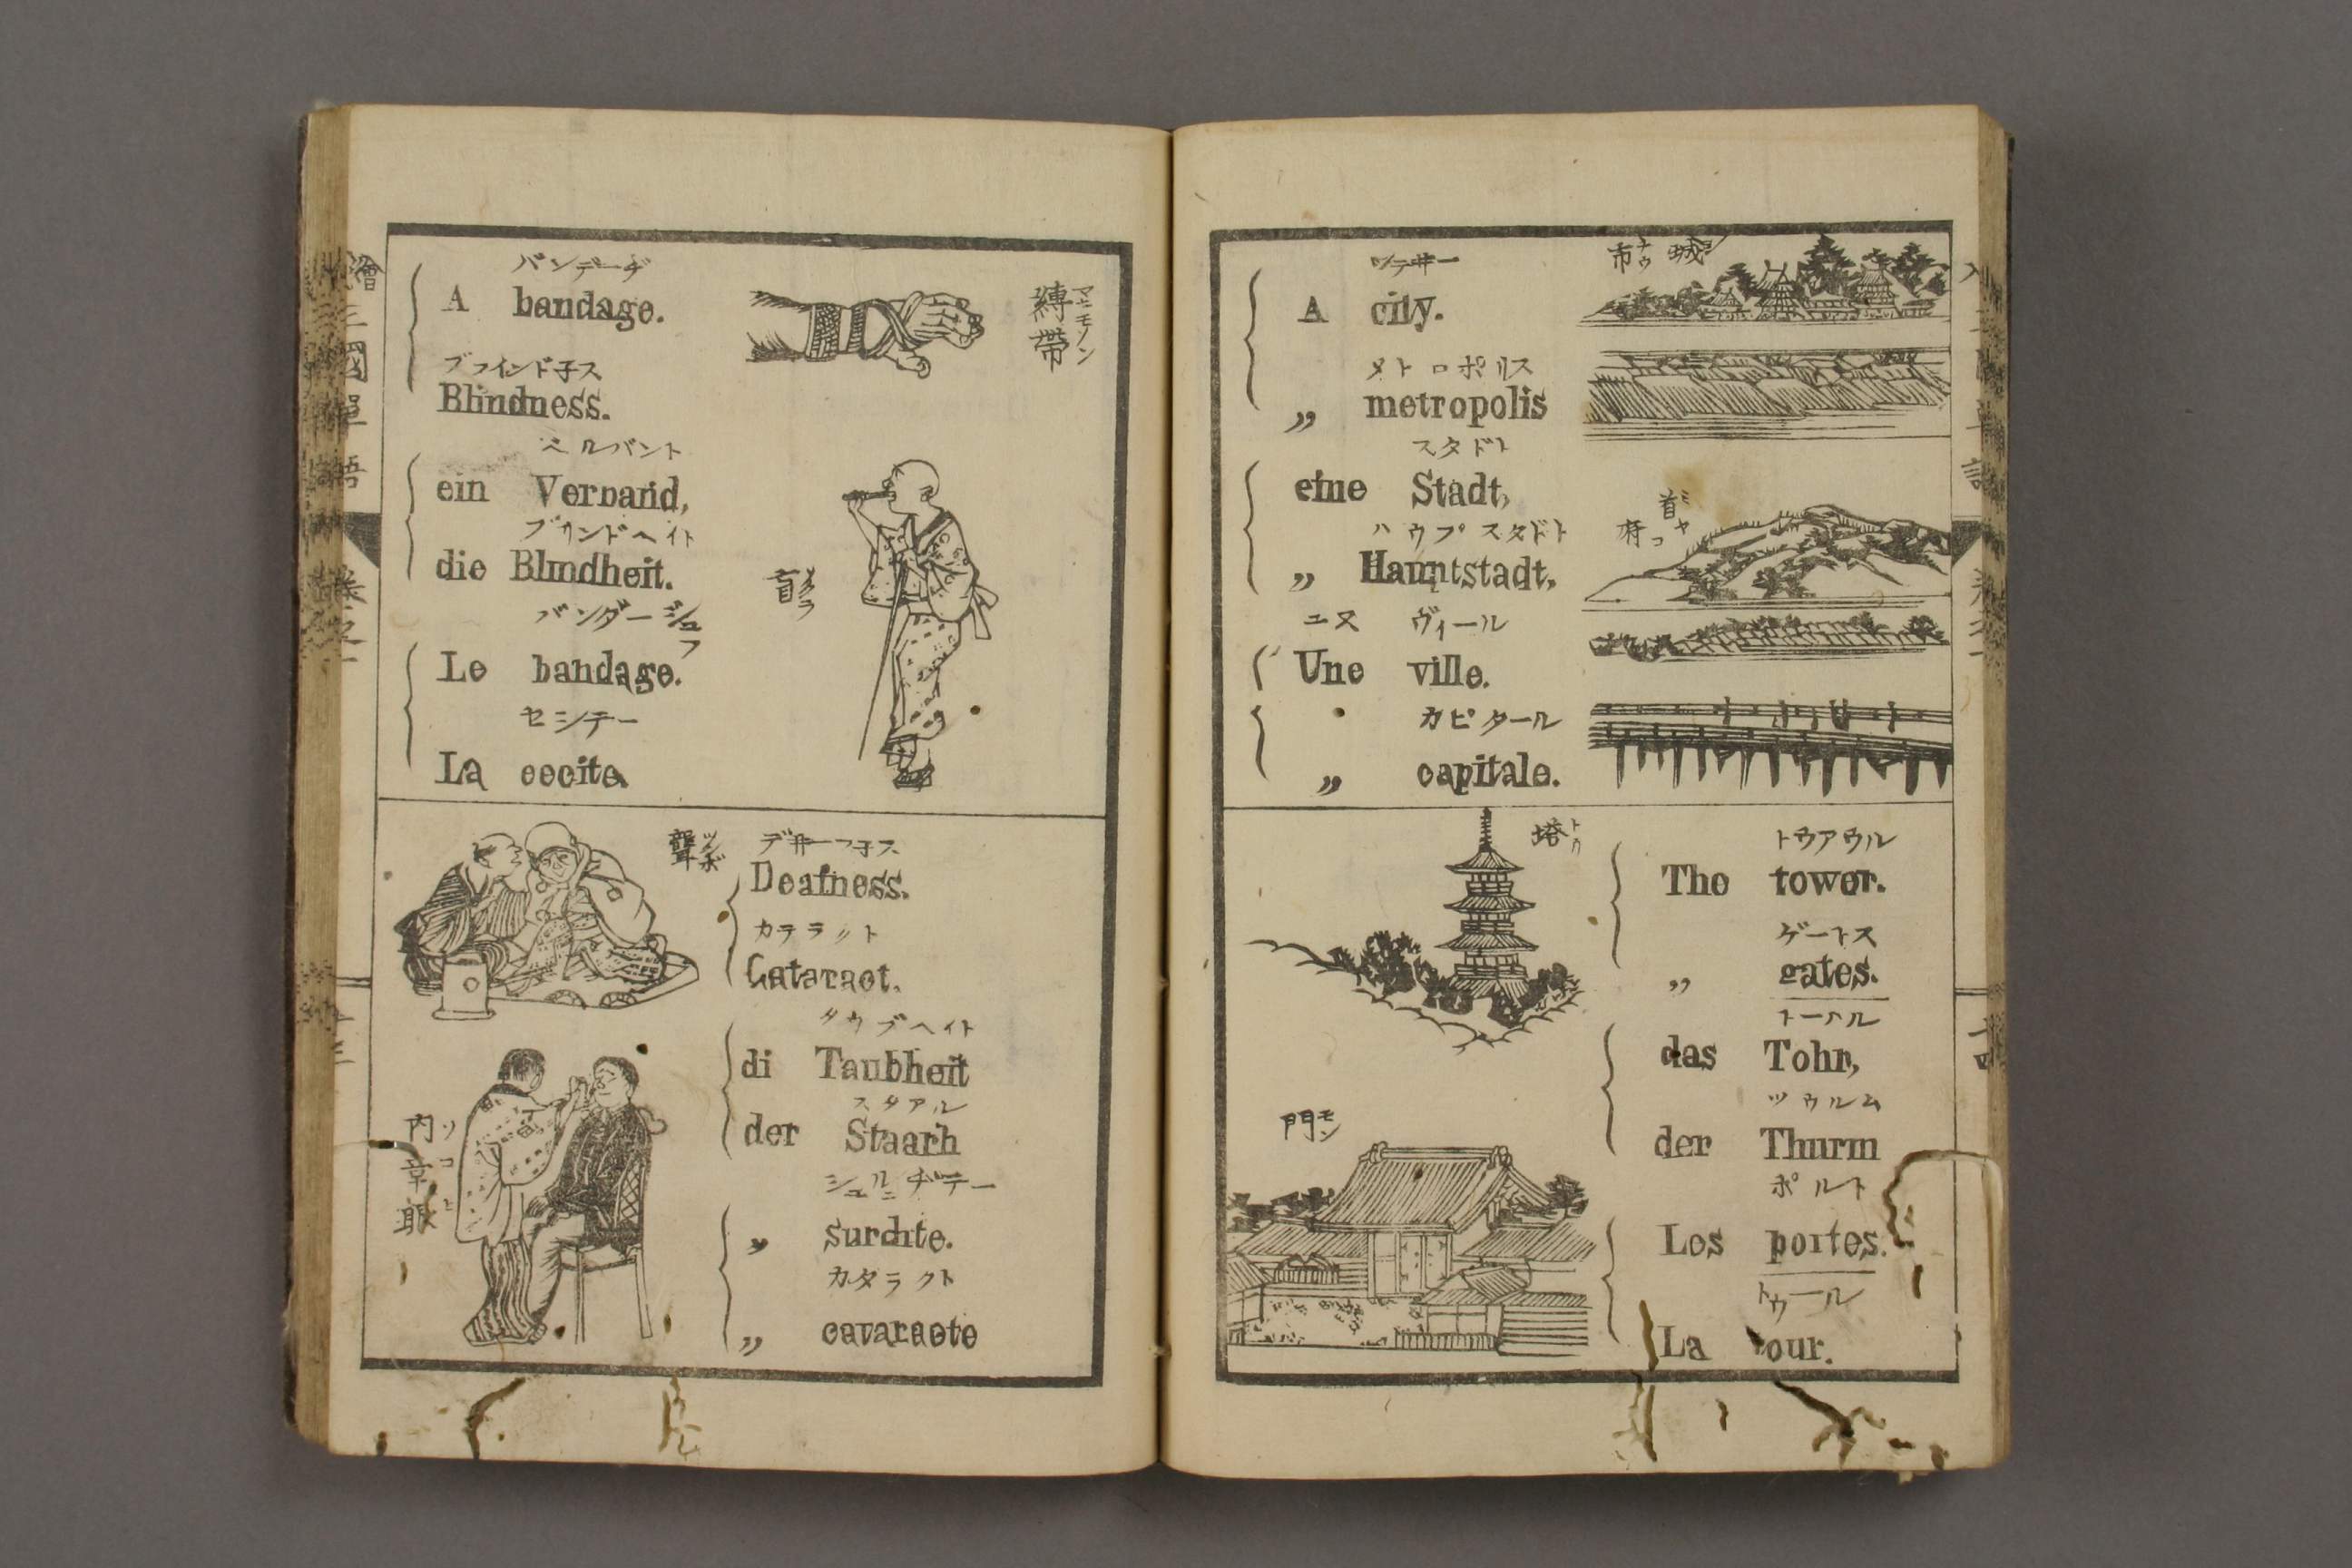 バンデーヂ
A bandage.
縛帶
マキモノン
ブラインド子ス
Blindness.
ベルバント
ein Verband,
ブリンドヘイト
die Blindheit.
盲
メクラ
バンダージュ
フ
Le bandage.
セシテー
La cecite.
聾
ツンボ
デ井ーフ子ス
Deafness.
カテラクト
Cataract.
タウブヘイト
di Taubheit
スタアル
der Staarh
内障眼
ソコヒ
シュルヂテー
„ surdite.
カタラクト
„ cataracte
シテ井ー
A city.
城市
メトロポルス
„ metropolis
スタドト
eine Stadt,
首府
ミヤコ
ハウプスタドト
„ Hauptstadt,
ユヌ ヴィール
Une ville.
カピタール
„ capitale.
塔
トウアウル
The tower.
ゲートス
„ gates.
トーハル
das Tohr,
ツゥルム
der Thurm
門
モン
ポルト
Les portes.
トゥール
La our.
繪
三國單語